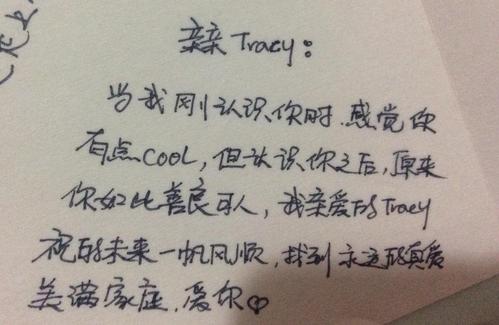 亲亲Tracy：
当我刚认识你时，感觉你
有点COOL，但认识你之后，原来
你如此善良可人，我亲爱的Tracy
祝的未来一帆风顺，找到永远的真爱
美满家座，爱你♡